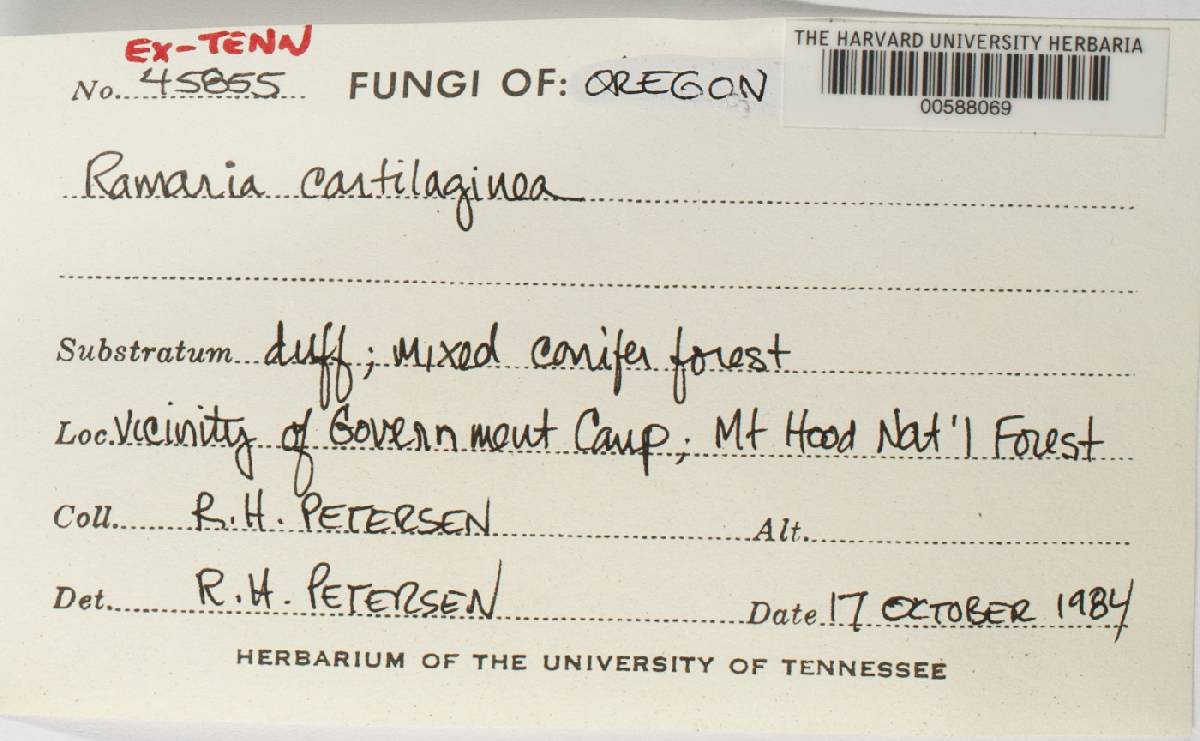 EX-TENN
No. 45855 FUNGI OF: OREGON
THE HARVARD UNIVERSITY HERBARIA
00588069
Ramaria cartilaginea
Substratum duff; mixed conifer forest
Loc. Vicinity of Government Camp; Mt Hood Nat'l Forest
Coll. R.H. PETERSEN Alt.
Det. R.H. PETERSEN Date 17 OCTOBER 1984
HERBARIUM OF THE UNIVERSITY OF TENNESSEE